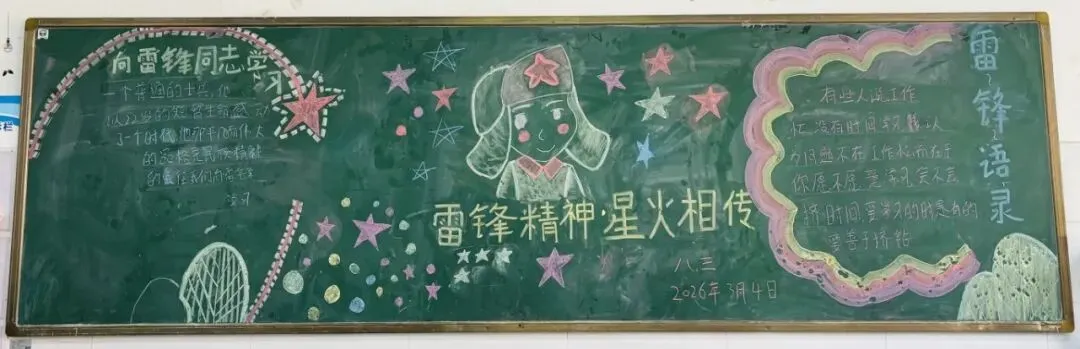 向雷锋同志学
习
一个普通的士兵，他
以22岁的短暂生命感动
了一个时代，他那平凡而伟大
的
学习
雷锋精神·星火相传
八.三
2026年3月4日
雷锋语录
有些人说工作
忙没有时间学习，我认
为问题不在工作忙，而在于
你愿不愿意学习，会不会
挤时间，要学习的时间是有的
要善于挤钻